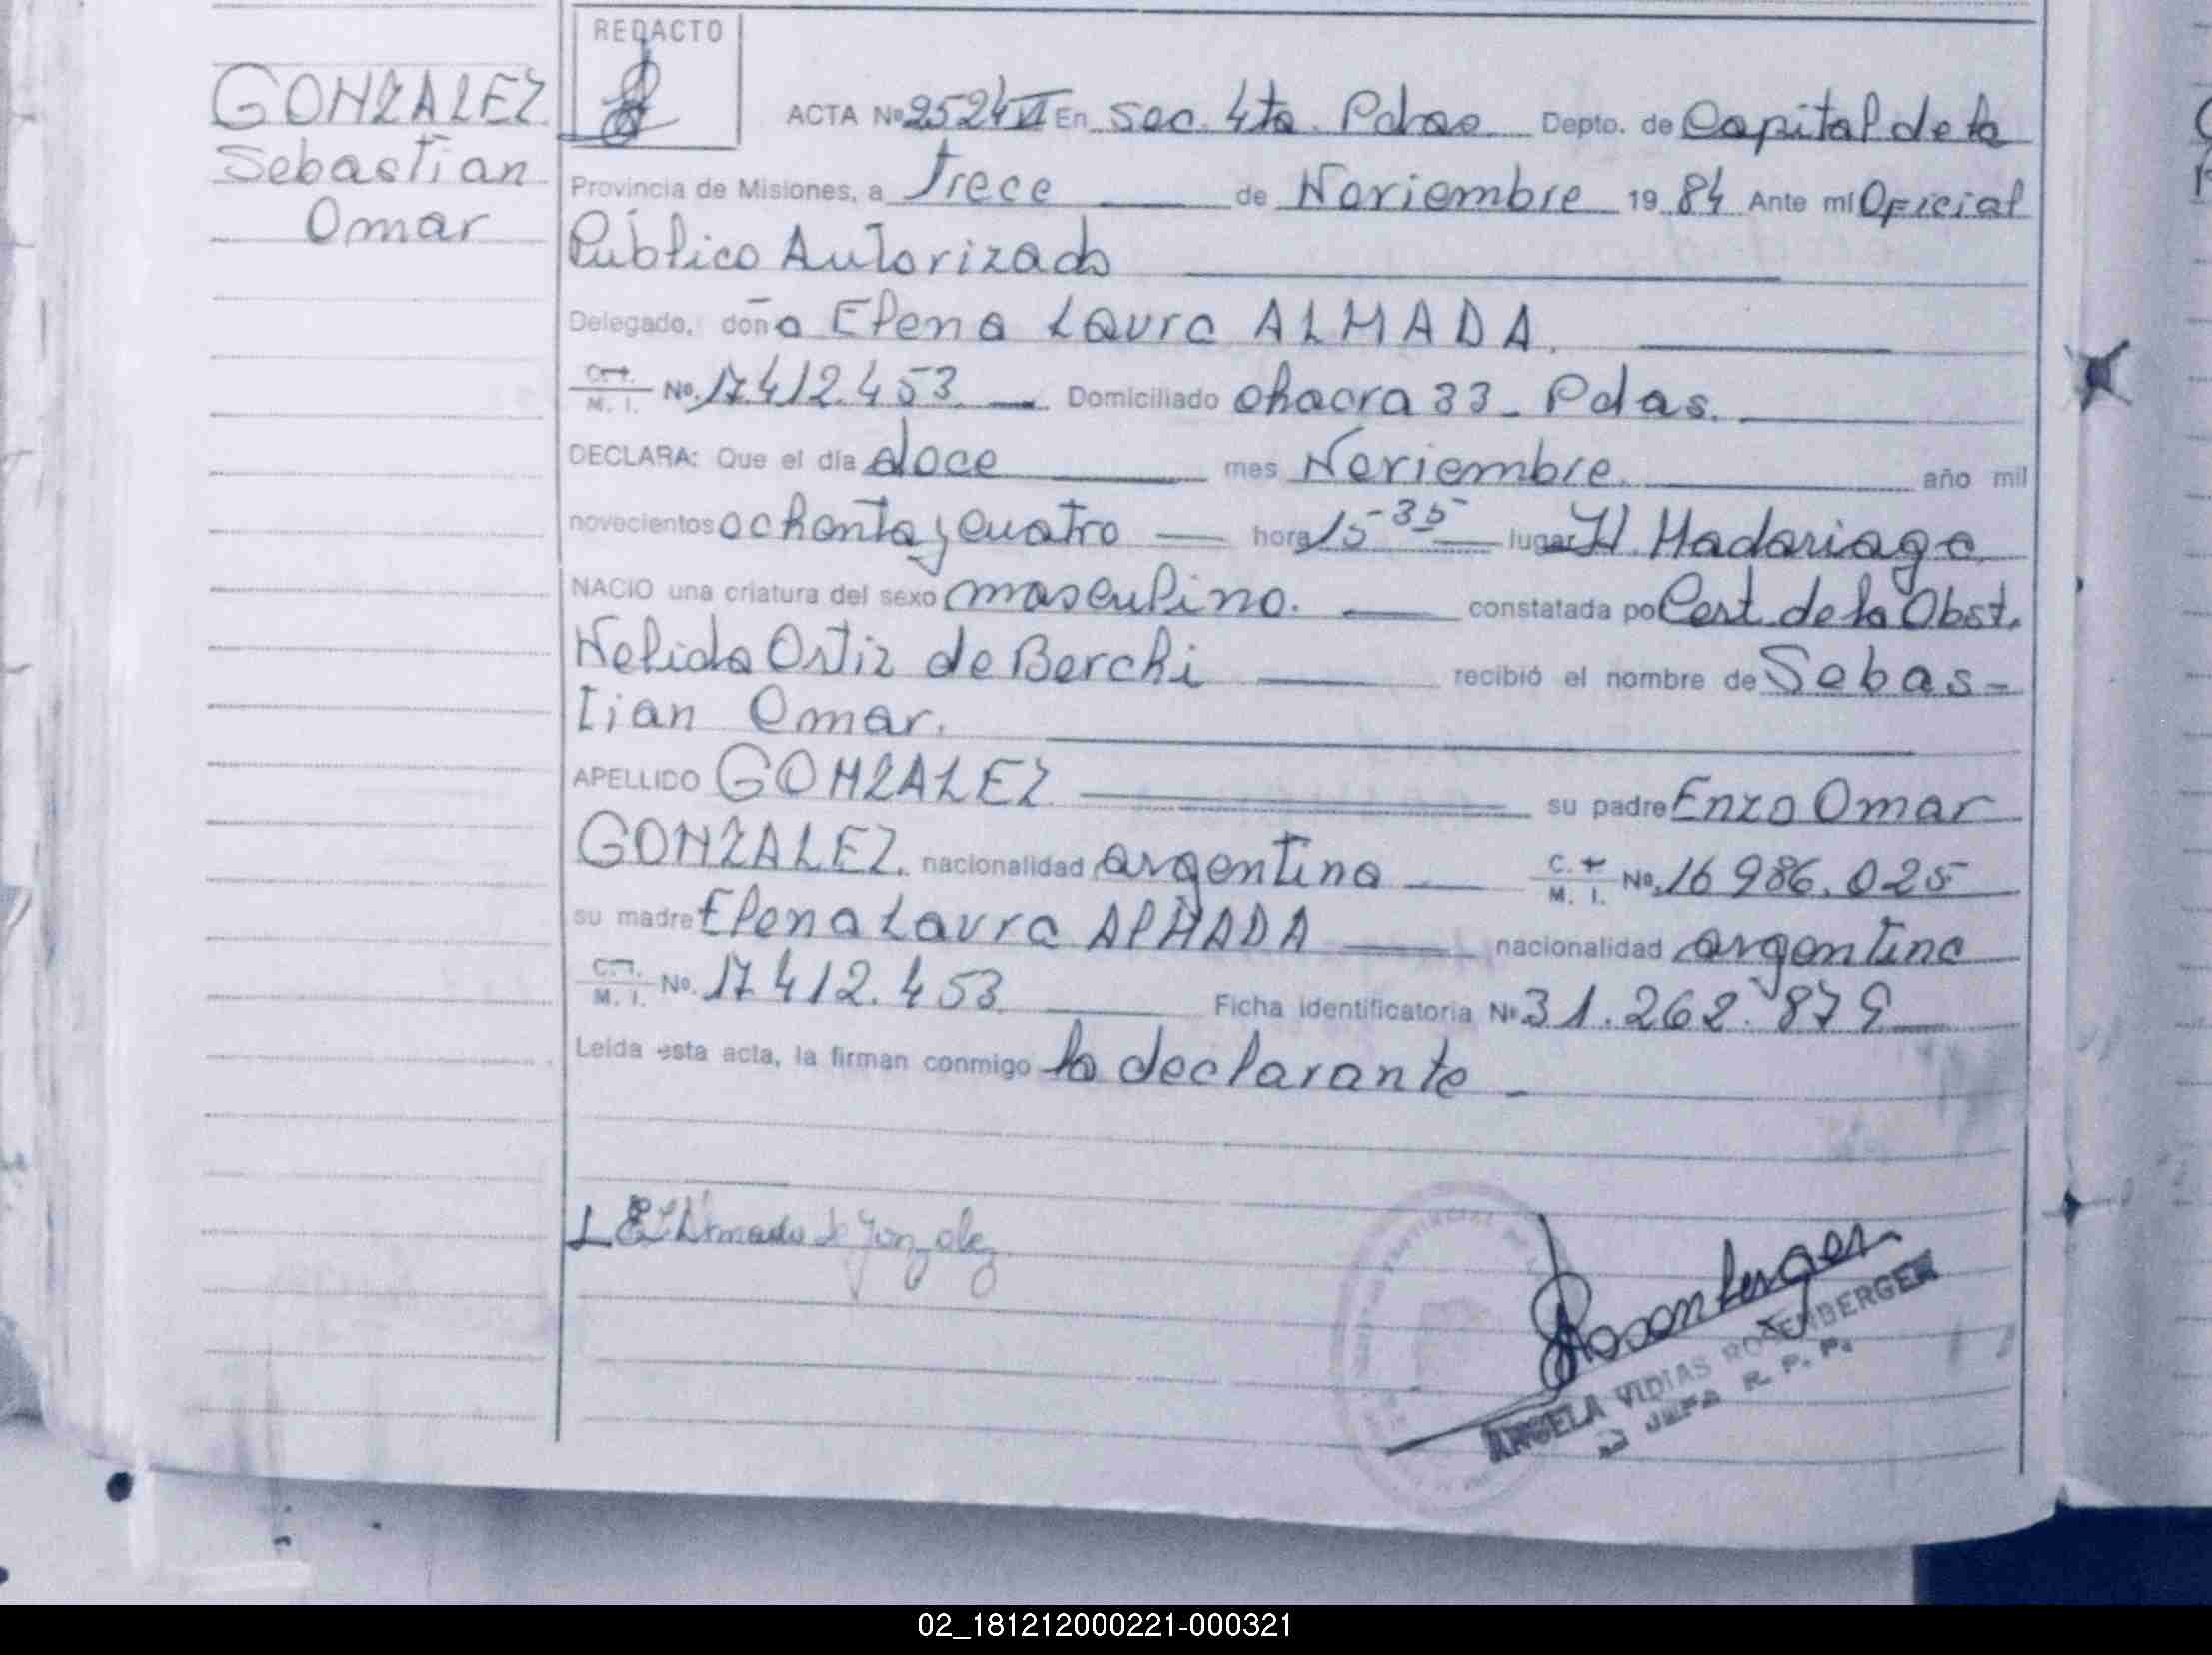 REDACTO
GONZALEZ
Sebastian
Omar
ACTA Nº 2524 VI En Sec. 4ta. Pdas Depto. de Capital de la
Provincia de Misiones, a Trece de Noviembre 19 84 Ante mí Oficial
Público Autorizado
Delegado, doña Elena Laura ALMADA.
C. I. M. I. Nº 17.412.453 Domiciliado chacra 33 - Pdas.
DECLARA: Que el día doce mes Noviembre. año mil
novecientos ochenta y cuatro hora 15-35 lugar H. Madariaga
NACIO una criatura del sexo masculino. constatada po Cert. de la Obst.
Nelida Ortiz de Berchi recibió el nombre de Sebas-
tian Omar.
APELLIDO GONZALEZ su padre Enzo Omar
GONZALEZ. nacionalidad argentina C. I. M. I. Nº 16 986.025
su madre Elena Laura ALMADA nacionalidad argentina
C. I. M. I. Nº 17 412.453 Ficha identificatoria Nº 31.262.879
Leída esta acta, la firman conmigo la declarante -
Almada de Gonzalez
Rosenberger
ANGELA VIDIAS ROSENBERGER
JEFA R. P. P.
02_181212000221-000321